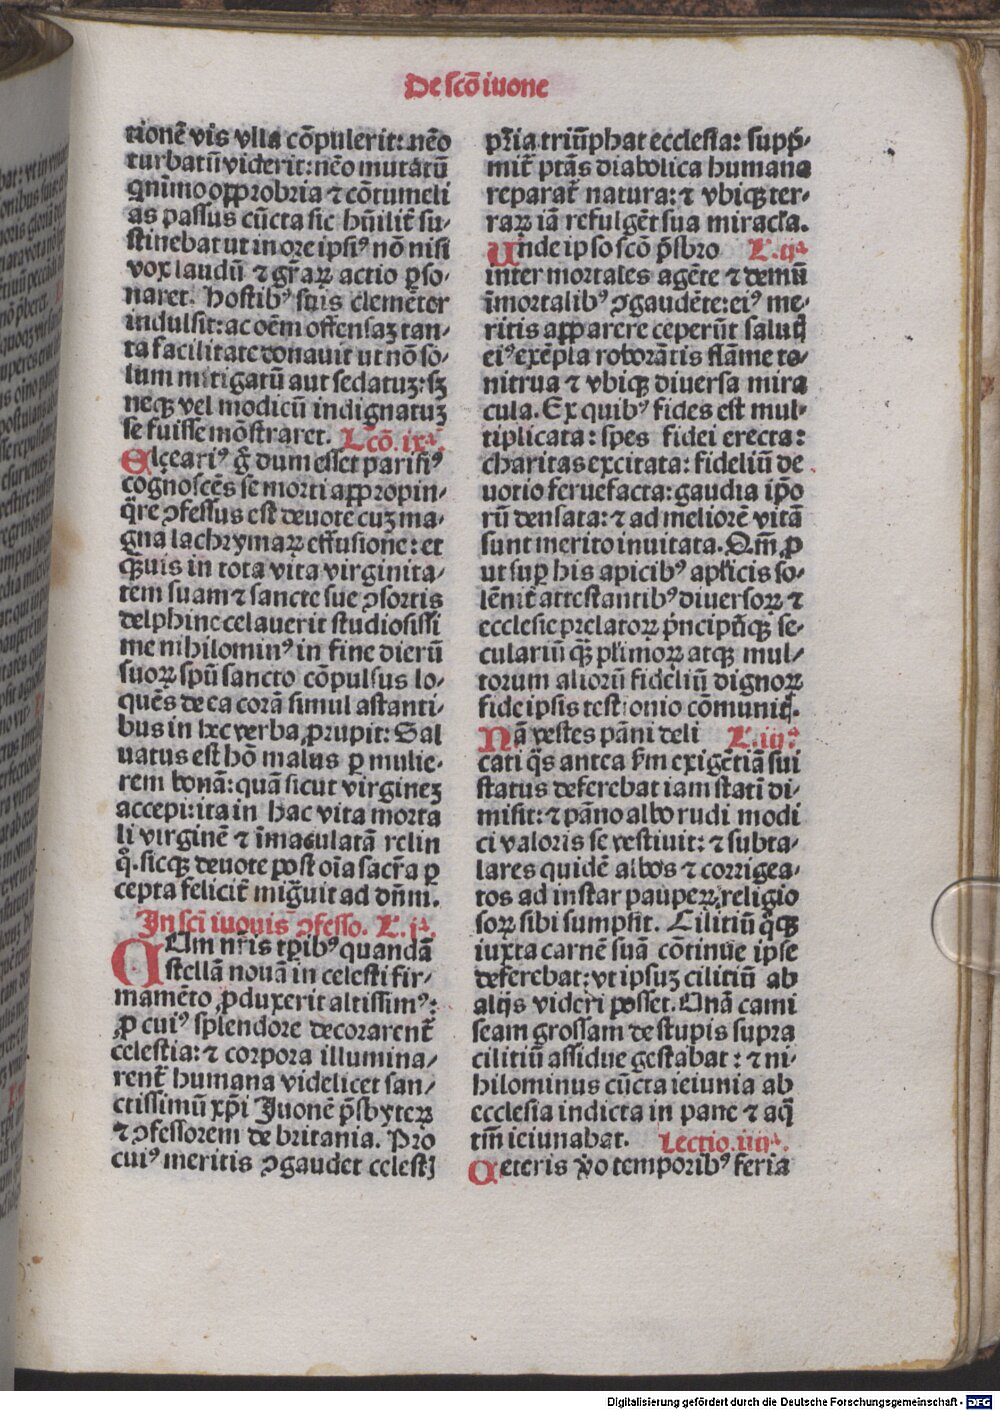 De scō iuone
tionē vis vlla cōpulerit: nēo
turbatū viderit: nēo mutatū
qnīmo opprobria ⁊ cōtumeli
as passus cūcta sic hūilit̄ su-
stinebat ut in ore ipsiꝰ nō nisi
vox laudū ⁊ gr̄aꝝ actio ꝑso-
naret. hostibꝰ suis clemēter
indulsit: ac oēm offensaꝫ tan-
ta facilitate donauit ut nō so-
lum mitigatū aut sedatuꝫ: sꝫ
neqꝫ vel modicū indignatuꝫ
se fuisse mōstraret. Lcō. ixᵃ.
Elceariꝰ g̊ dum esset parisiꝰ
cognoscēs se morti appropin-
q̄re ꝯfessus est deuote cuꝫ ma-
gna lachrymaꝝ effusione: et
qꝫuis in tota vita virginita-
tem suam ⁊ sancte sue ꝯsortis
delphine celauerit studiosissi
me nihilominꝰ in fine dierū
suoꝝ spū sancto cōpulsus lo-
quēs de ea corā simul astanti-
bus in hec verba ꝓrupit: Sal
uatus est hō malus ꝑ mulie-
rem bonā: quā sicut virgineꝫ
accepi: ita in hac vita morta
li virginē ⁊ īmaculatā relin
q̊. sicqꝫ deuote post oīa sacr̄a ꝑ
cepta felicit̄ migͣuit ad dn̄m.
In scī iuonis ꝯfesso. L. jᵃ.
QUm nr̄is tꝑibꝰ quandā
stellā nouā in celesti fir-
mamēto ꝓduxerit altissimꝰ:
ꝓ cuiꝰ splendore decorarent̄
celestia: ⁊ corpora illumina-
rent̄ humana videlicet san-
ctissimū xp̄i Juonē p̄sbyteꝝ
⁊ ꝯfessorem de britania. Pro
cuiꝰ meritis ꝯgaudet celestꝭ
pr̄ia triūphat ecclesia: supp̄-
mit̄ ptās diabolica humana
reparat̄ natura: ⁊ vbiqꝫ ter-
raꝝ iā refulgēt sua miracl̄a.
Unde ipso scō p̄sbro L. ijᵃ
inter mortales agēte ⁊ demū
īmortalibꝰ ꝯgaudēte: eiꝰ me-
ritis apparere ceperūt saluti
eiꝰ exēpla roborātis flāme to-
nitrua ⁊ vbiqꝫ diuersa mira
cula. Ex quibꝰ fides est mul-
tiplicata: spes fidei erecta:
charitas excitata: fideliū de
uotio feruefacta: gaudia ip̄o
rū densata: ⁊ ad meliorē vitā
sunt merito inuitata. Qm̄ ꝓ
ut suꝑ his apicibꝰ apl̄icis so-
lēnit̄ attestantibꝰ diuersoꝝ ⁊
ecclesie prelatoꝝ pͥncipūqꝫ se-
culariū qꝫ pl̄imoꝝ atqꝫ mul-
torum alioruꝫ fideliū dignoꝝ
fide ipsis testionio cōmuniꝭ.
Nā vestes pāni deli L. iijᵃ
cati q̄s antea ẜm exigētiā sui
status deferebat iam stati di-
misit: ⁊ pāno albo rudi modi
ci valoris se vestiuit: ⁊ subta-
lares quidē albos ⁊ corrigea-
tos ad instar pauperꝝ religio
soꝝ sibi sumpsit. Ciliciū qͦqꝫ
iuxta carnē suā cōtinue ipse
deferebat: vt ipsuꝫ cilitiū ab
alijs videri posset. Quā cami
seam grossam de stupis supra
cilitiū assidue gestabat: ⁊ ni-
hilominus cūcta ieiunia ab
ecclesia indicta in pane ⁊ aqͣ
tm̄ ieiunabat. Lectio. iiijᵃ.
Ceteris v̊o temporibꝰ feria
Digitalisierung gefördert durch die Deutsche Forschungsgemeinschaft - DFG